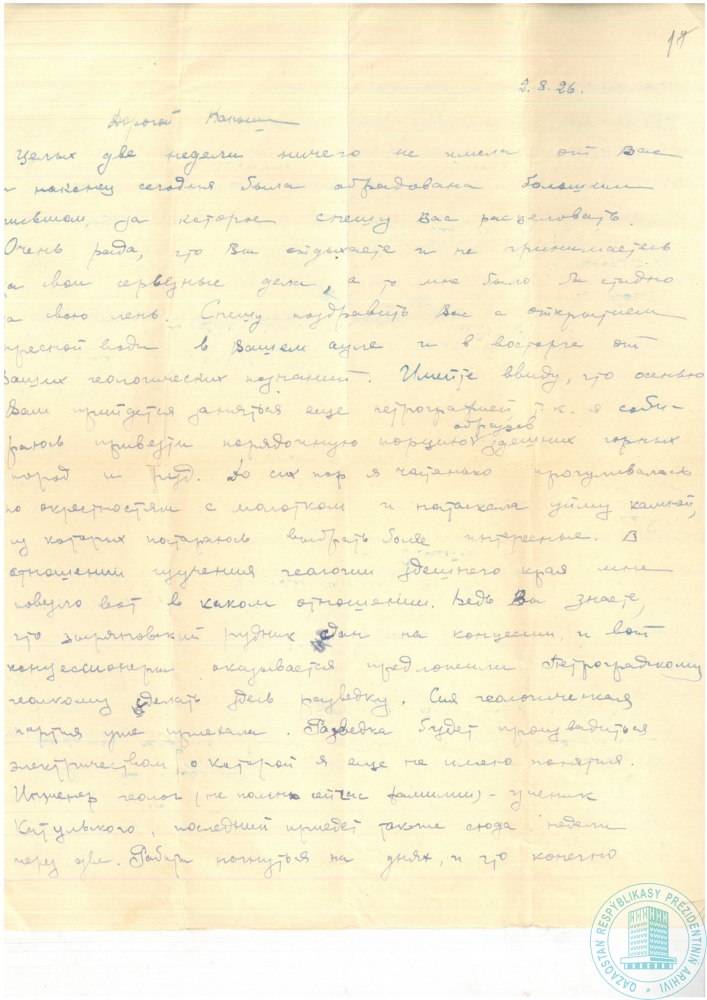 18
2.8.26.
Дорогой Каныш
Целых две недели ничего не имела от Вас
и наконец сегодня была обрадована большим
письмом, за которое спешу Вас расцеловать.
Очень рада, что Вы отдыхаете и не принимаетесь
за свои серьезные дела, а то мне было бы стыдно
за свою лень. Спешу поздравить Вас с открытием
пресной воды в Вашем ауле и в восторге от
Ваших геологических познаний. Имейте ввиду, что осенью
Вам прийдется заняться еще петрографией, т.к. я соби-
раюсь привезти порядочную порцию образцов здешних горных
пород и руд. До сих пор я частенько прогуливалась
по окрестностям с молотком и натаскала уйму камней,
из которых постараюсь выбрать более интересные. В
отношении изучения геологии здешнего края мне
повезло вот в каком отношении. Ведь Вы знаете,
что зыряновский рудник сдан на концессии, и вот
концессионеры оказывается предложили Петроградскому
геолкому сделать здесь разведку. Сия геологическая
партия уже приехала. Разведка будет производиться
электричеством, о которой я еще не имею понятия.
Инженер геолог (не помню сейчас фамилии) - ученик
Котульского, последний приедет также сюда недели
через две. Работы начнуться на днях, и это конечно
QAZAQSTAN RESPÝBLIKASY PREZIDENTINIŃ ARHIVI